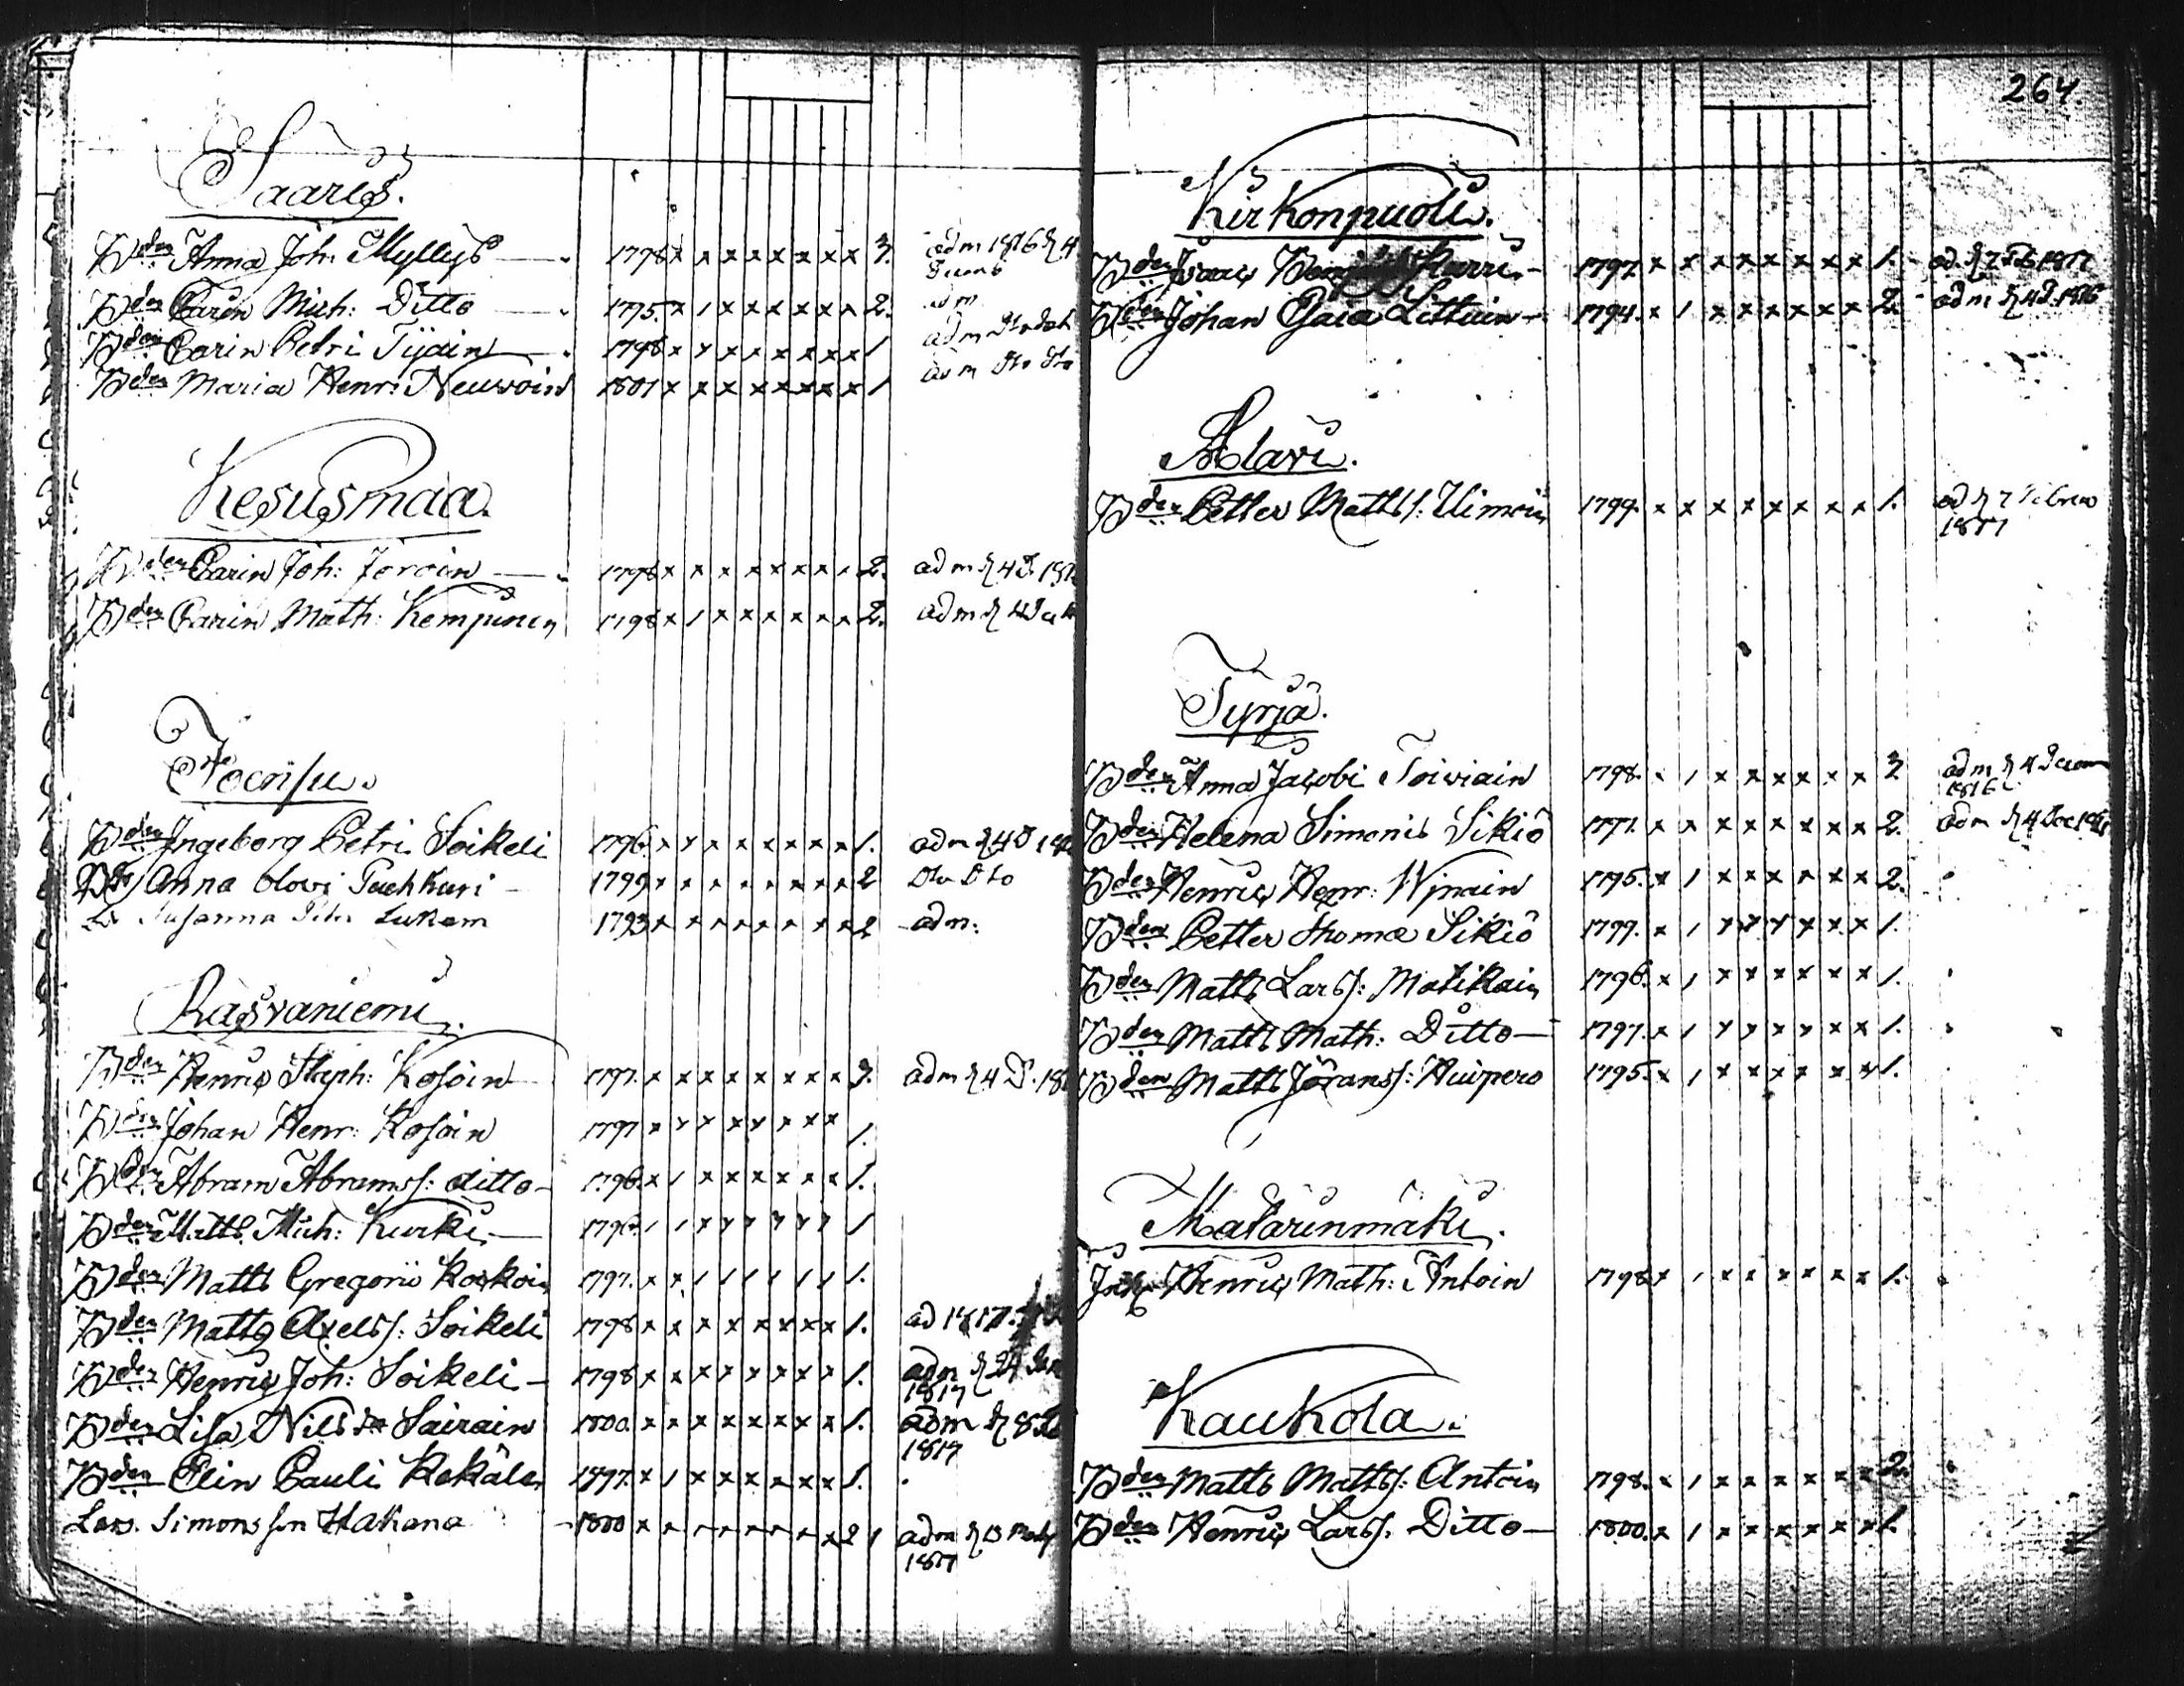 Saares.
Bden Anna Joh: Myllys 1798 x x x x x x x x 3. adm 1816 d 4
Decemb
Bden Carin Mich: Ditto 1795. x 1 x x x x x x 2. adm
Bden Carin Petri Tijain 1798 x x x x x x x x 1 adm Dto
Bden Maria Henr: Neuvoin 1801 x x x x x x x x 1 adm Dto Dto
Kesusmaa.
Bden Carin Joh: Jöroin 1798 x x x x x x x x 2. adm d 4 D.
Bden Carin Math: Kempinen 1798 x 1 x x x x x x 2. adm d 4
Bden Ingeborg Petri Soikeli 1796. x x x x x x x x 1. adm d 4 D
Anna Olovi Puhkuri 1799 x x x x x x x x 2 Dto Dto
Susanna Petri Lukain 1793 x x x x x x x x 2 adm:
Rasvaniemi.
Bden Henric Steph: Kosoin 1797. x x x x x x x x 3. adm d 4 D.
Bden Johan Henr: Kosoin 1797 x x x x x x x x 1.
Bden Abram Abramss: ditto 1796. x 1 x x x x x x 1.
Bden Matts Mich: Kurki 1796. 1 1 x x x x x x 1
Bden Matts Gregorii Koskoin 1797. x x 1 1 1 1 1 1 1.
Bden Matts Axelss: Soikeli 1798 x x x x x x x x 1. ad 1817.
Bden Henric Joh: Soikeli 1798 x x x x x x x x 1. adm d 24
1817
Bden Lisa Nils Sairain 1800. x x x x x x x x 1. adm d 8
1817
Bden Elin Pauli Kekäläi 1797. x 1 x x x x x x 1.
Lars Simonsson Hakana 1800 x x x x x x x x 2 adm d 13
1817
264.
Kirkonpuoli.
Bden Isaac 1797 x x x x x x x x 1. ad. d 7 Feb 1817
Bden Johan Esaiæ Littuin 1794. x 1 x x x x x x 2. adm d 4 D. 1816
Alavi.
Bden Petter Mattss: Uimoin 1799. x x x x x x x x 1. ad d 7 Febru
1817
Tyrjä.
Bden Anna Jacobi Toiviain 1798. x 1 x x x x x x 2 adm d 4 Decem
1816
Bden Helena Simonis Sikiö 1771. x x x x x x x x 2. adm d 4 Dec
Bden Henric Henr: Wjnain 1795. x 1 x x x x x x 2.
Bden Petter Thomæ Sikiö 1797. x 1 x x x x x x 1.
Bden Matts Larss: Matikain 1796. x 1 x x x x x x 1.
Bden Matts Math: Ditto 1797. x 1 x x x x x x 1.
Bden Matts Jöranss: Huipero 1795. x 1 x x x x x x 1.
Matarinmäki.
Henric Math: Antoin 1798 x 1 x x x x x x 1.
Kaukola.
Bden Matts Mattss: Antoin 1798. x 1 x x x x x x 2.
Bden Henric Larss. Ditto 1800. x 1 x x x x x x 1.